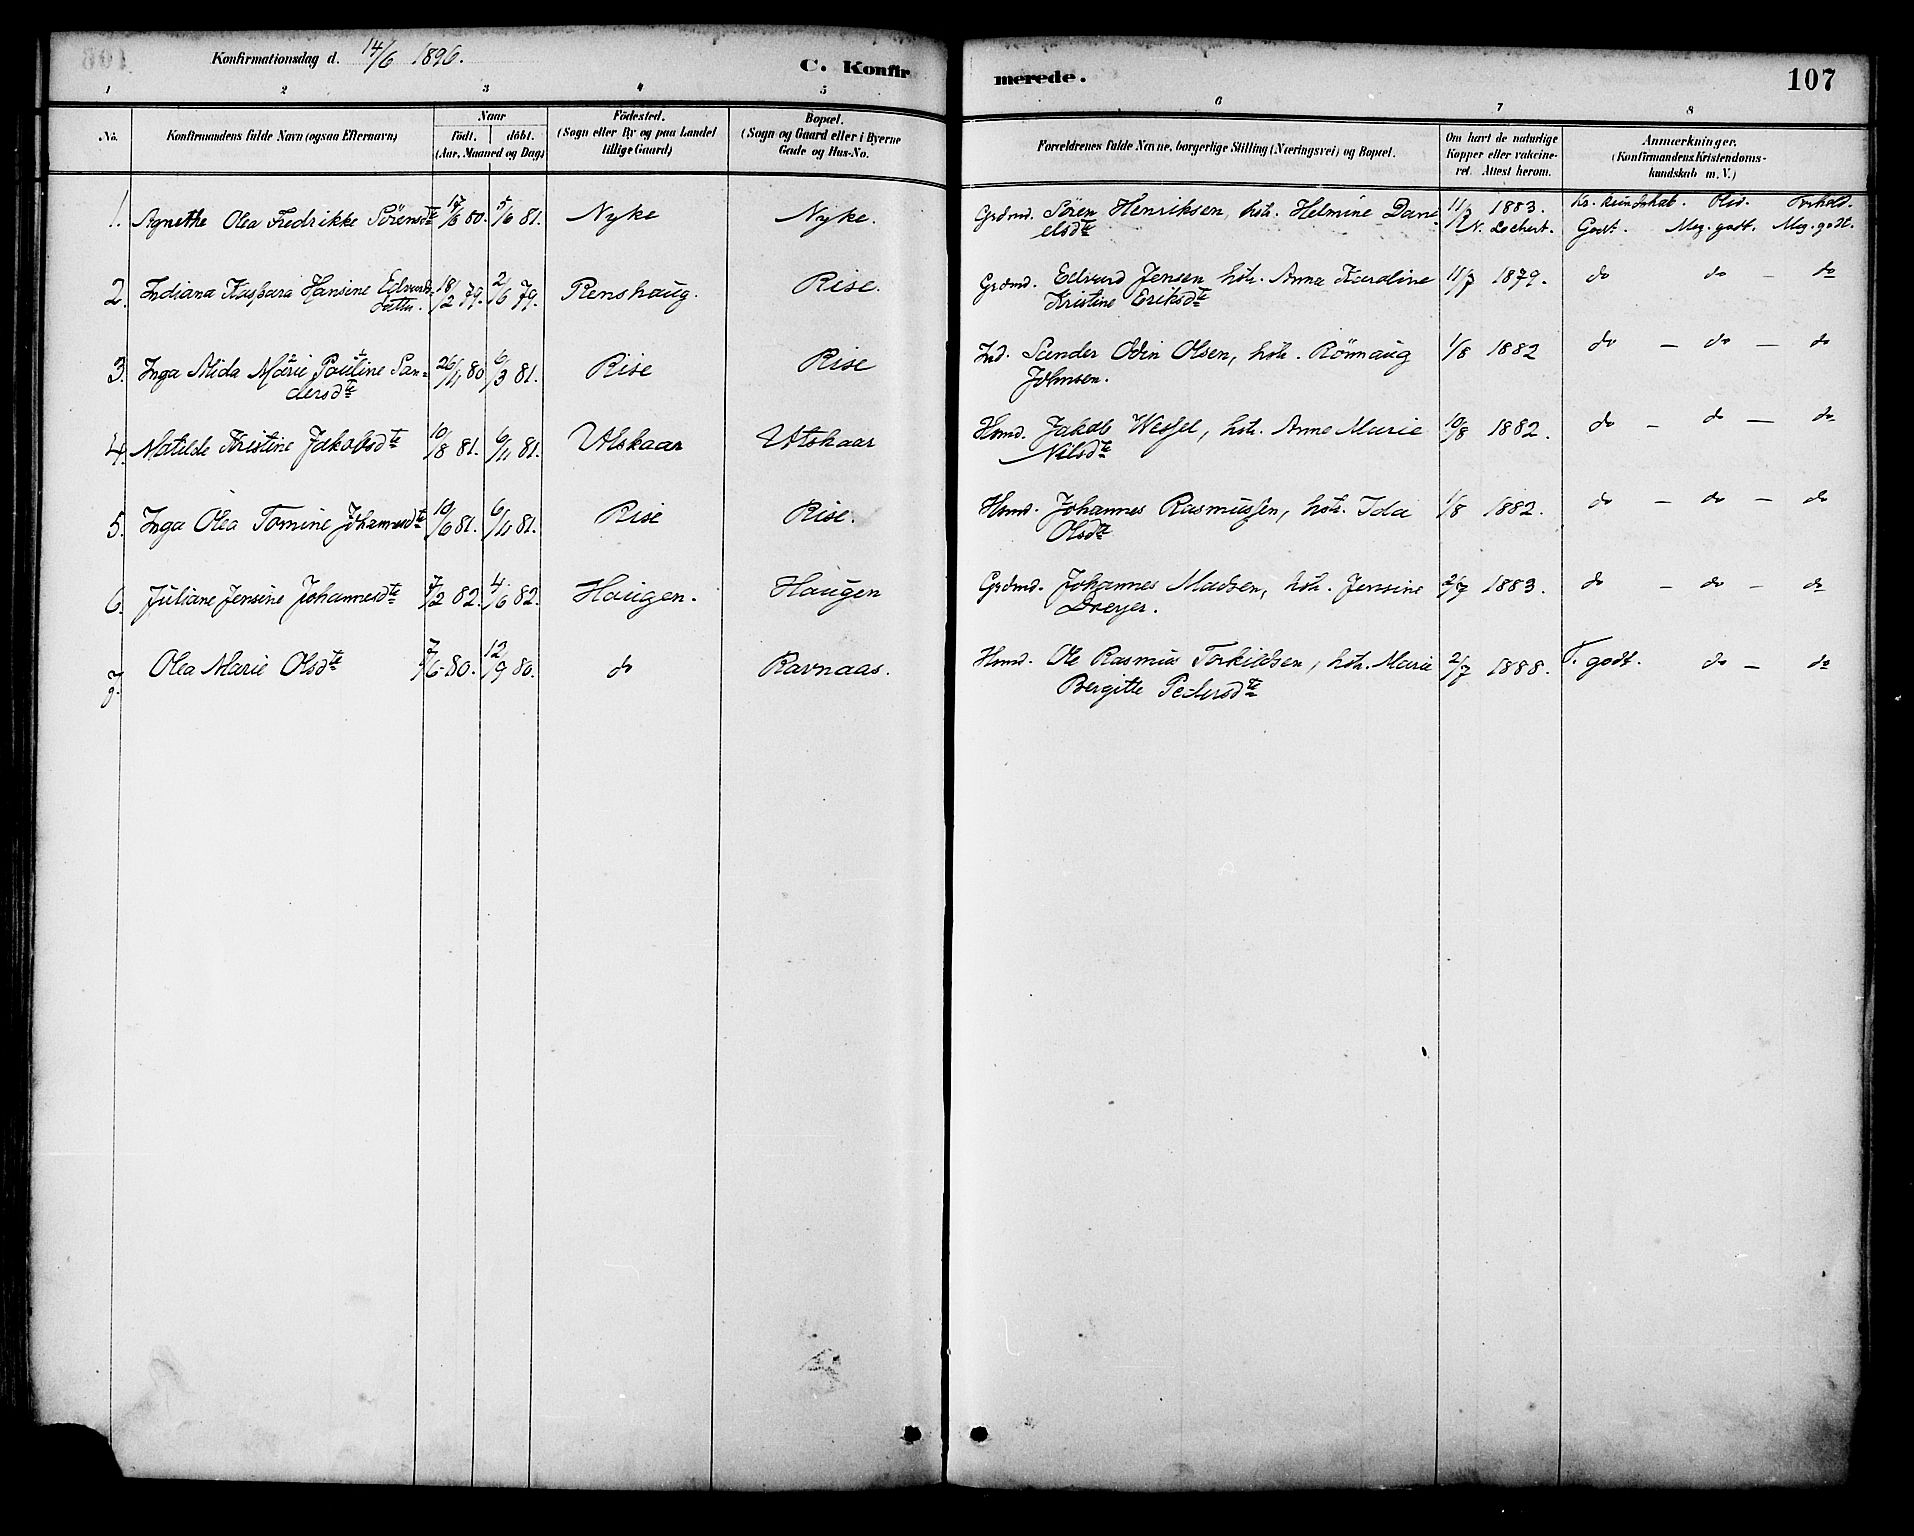 Konfirmationsdag d. 14/6 1896.
C. Konfirmerede.
107
1 2 3 4 5 6 7 8
No.
Konfirmandens fulde Navn (ogsaa Efternavn)
Naar
födt. döbt.
(Aar, Maaned og Dag)
Födested.
(Sogn eller By og paa Landet
tillige Gaard)
Bopæl.
(Sogn og Gaard eller i Byerne
Gade og Hus-No.
Forældrenes fulde Navne, borgerlige Stilling (Næringsvei) og Bopæl.
Om havt de naturlige
Kopper eller vakcine-
ret. Attest herom.
Anmærkninger.
(Konfirmandens Kristendoms-
kundskab m. V.)
Kr. kundskab. Flid. Forhold.
1. Agnethe Olea Fredrikke Sörensdte 17/6 80. 5/6 81. Nyke Nyke. Grdmd. Sören Henriksen, hstr. Helmine Dani- 11/7 1883. Godt. Meg. godt. Meg. godt.
elsdte N. Lochert.
2. Indiana Kaspara Hansine Edvards- 18/2 79. 2/6 79. Renshaug. Rise. Grdmd. Edvard Jensen hstr. Anna Karoline 11/7 1879. do do — do
datter. Kristine Eriksdte
3. Inga Alida Marie Pauline San- 26/11 80 6/3 81. Rise Rise Ind. Sander Odin Olsen, hstr. Rönnaug 1/8 1882 do — do — do
dersdte Johnsen.
4. Matilde Kristine Jakobsdte 10/8 81. 6/11 81. Utskaar Utskaar Hsmd. Jakob Wessel, hstr. Anne Marie 10/8 1882. do — do — do
Nilsdte
5. Inga Olea Tomine Johannesdte 10/6 81. 6/11 81. Rise Rise. Hsmd. Johannes Rasmussen, hstr. Ida 1/8 1882. do — do — do
Olsdte
6. Juliane Jensine Johannesdte 7/2 82. 4/6 82. Haugen. Haugen Grdmd. Johannes Madsen, hstr. Jensine 2/7 1883. do — do — do
Dreyer.
7. Olea Marie Olsdte 7/6 80. 12/9 80. do Ravnaas. Hsmd. Ole Rasmus Torkildsen, hstr. Marie 2/7 1888. T. godt. do — do
Bergitte Pedersdte